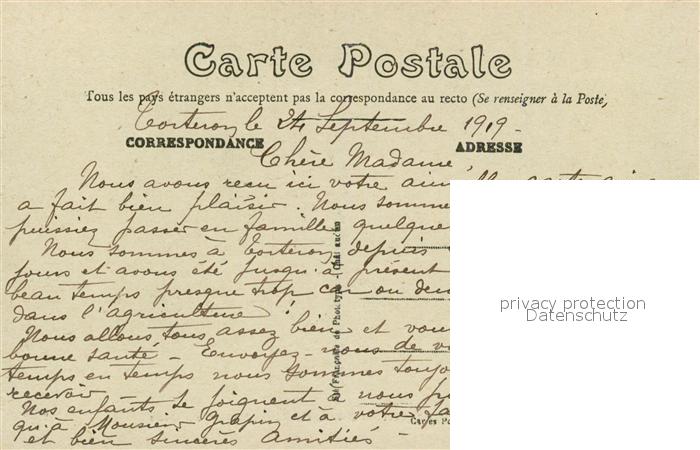 Carte Postale
Tous les pays étrangers n'acceptent pas la correspondance au recto (Se renseigner à la Poste)
Torteron le 24 Septembre 1919 -
CORRESPONDANCE
ADRESSE
Chère Madame,
Nous avons reçu ici votre
a fait bien plaisir. Nous sommes
puissiez passer en famille quelque
Nous sommes à Torteron depuis
jours et avons été jusqu'à présent
beau temps presque trop car on
dans l'agriculture !
Nous allons tous assez bien et vous
bonne santé - Envoyez-nous de
temps en temps nous sommes
recevoir
Nos enfants se joignent à nous
qu'à Monsieur et à votre
et bien sincères amitiés -
Française de Phototypie
privacy protection
Datenschutz